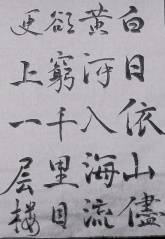 白日依山儘
黄河入海流
欲窮千里目
更上一层楼